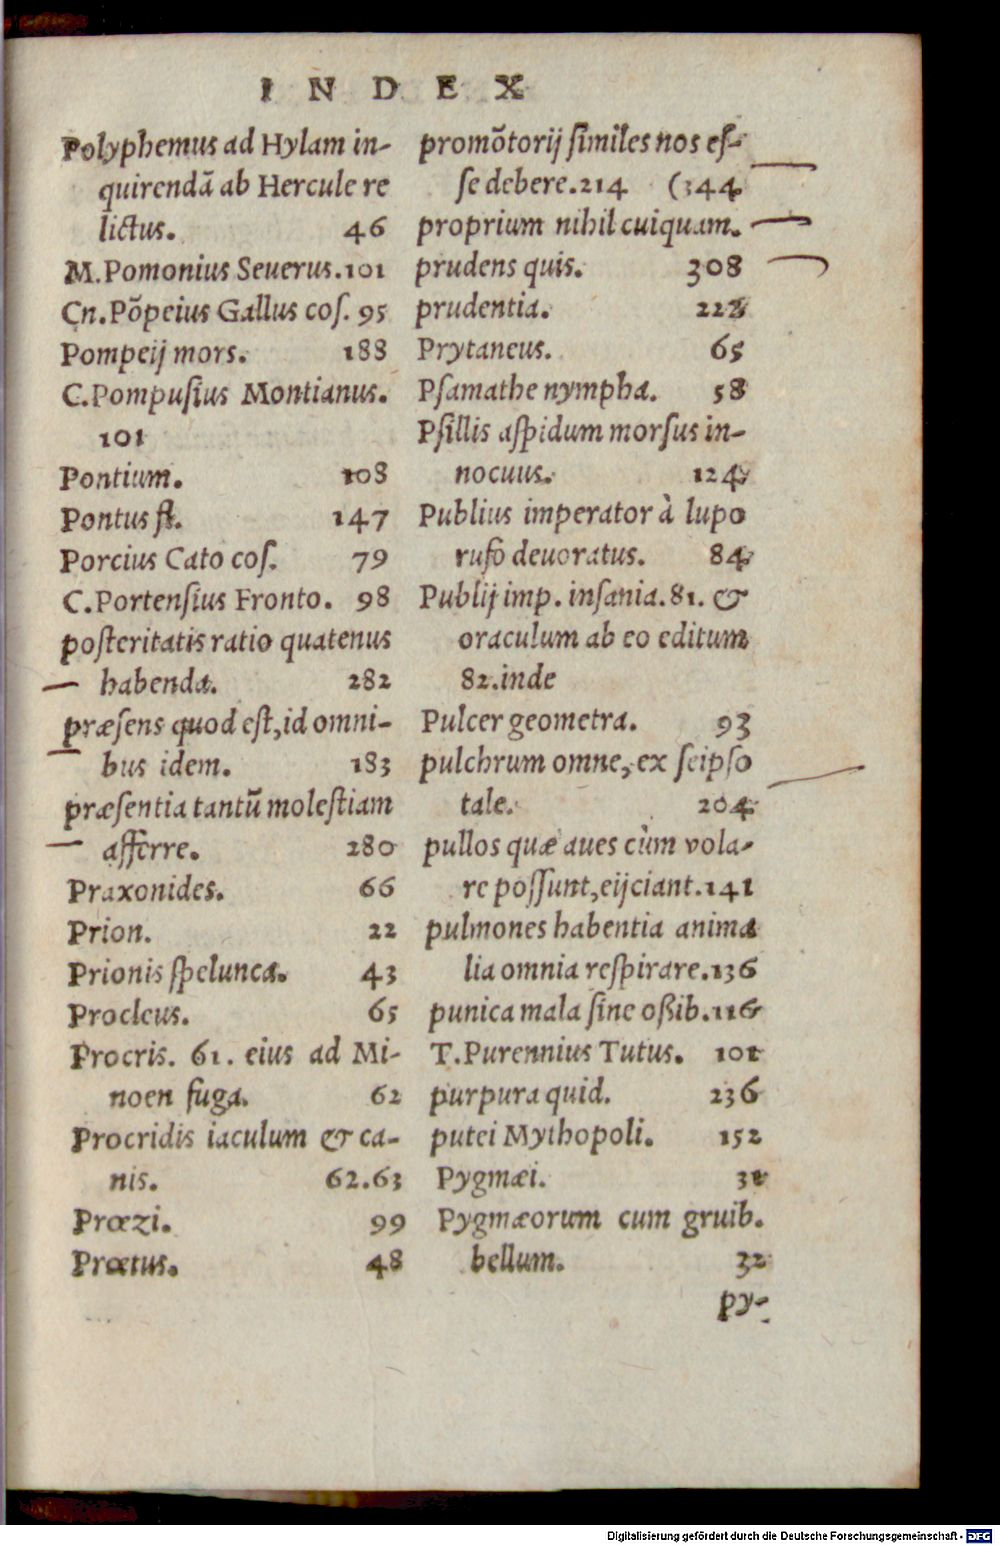 INDEX
Polyphemus ad Hylam in-
quirendã ab Hercule re
lictus. 46
M.Pomonius Seuerus.101
Cn.Põpeius Gallus coſ. 95
Pompeij mors. 188
C.Pompuſius Montianus.
101
Pontium. 108
Pontus fl. 147
Porcius Cato coſ. 79
C.Portenſius Fronto. 98
poſteritatis ratio quatenus
habenda. 282
præſens quod eſt,id omni-
bus idem. 183
præſentia tantũ moleſtiam
afferre. 280
Praxonides. 66
Prion. 22
Prionis ſpelunca. 43
Procleus. 65
Procris. 61. eius ad Mi-
noen fuga. 62
Procridis iaculum & ca-
nis. 62.63
Prœzi. 99
Prœtus. 48
promõtorij ſimiles nos eſ-
ſe debere.214 (344
proprium nihil cuiquam.
prudens quis. 308
prudentia. 222
Prytaneus. 65
Pſamathe nympha. 58
Pſillis aſpidum morſus in-
nocuus. 124
Publius imperator à lupo
rufo deuoratus. 84
Publij imp. inſania.81. &
oraculum ab eo editum
82.inde
Pulcer geometra. 93
pulchrum omne, ex ſeipſo
tale. 204
pullos quæ aues cùm vola-
re poſſunt,eijciant.141
pulmones habentia anima
lia omnia reſpirare.136
punica mala ſine oßib.116
T.Purennius Tutus. 101
purpura quid. 236
putei Mythopoli. 152
Pygmæi. 31
Pygmæorum cum gruib.
bellum. 32
py-
Digitalisierung gefördert durch die Deutsche Forschungsgemeinschaft - DFG